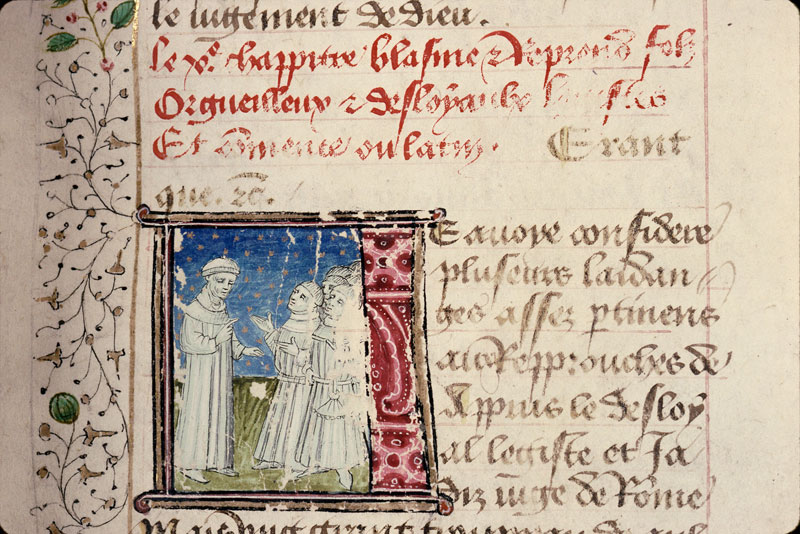 le iugement de dieu.
le v.e chappitre blasme & reprend folz
Orgueilleux & desloyaulx legistes
Et cōmence ou latin. Erant
que. &c.
E auoye considere
pluseurs laidan
ges assez ptinens
aux Repprouches de
Appius le desloy
al legiste et Ja
diz iuge de Rōme